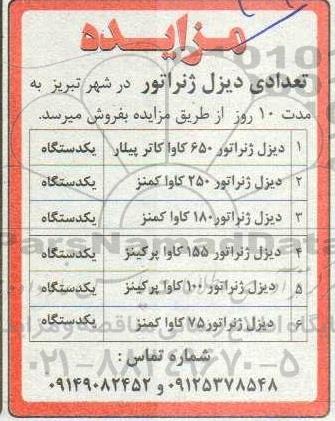 مزایده
تعدادی دیزل ژنراتور در شهر تبریز به
مدت ۱۰ روز از طریق مزایده بفروش میرسد.
۱ دیزل ژنراتور ۶۵۰ کاوا کاتر پیلار یکدستگاه
۲ دیزل ژنراتور ۲۵۰ کاوا کمنز یکدستگاه
۳ دیزل ژنراتور ۱۸۰ کاوا کمنز یکدستگاه
۴ دیزل ژنراتور ۱۵۵ کاوا پرکینز یکدستگاه
۵ دیزل ژنراتور ۱۰۰ کاوا پرکینز یکدستگاه
۶ دیزل ژنراتور ۷۵ کاوا کمنز یکدستگاه
شماره تماس :
۰۹۱۲۵۳۷۸۵۴۸ و ۰۹۱۴۹۰۸۲۴۵۲
ParsNamadData
۰۲۱-۸۸۳۴۹۶۷۰-۵